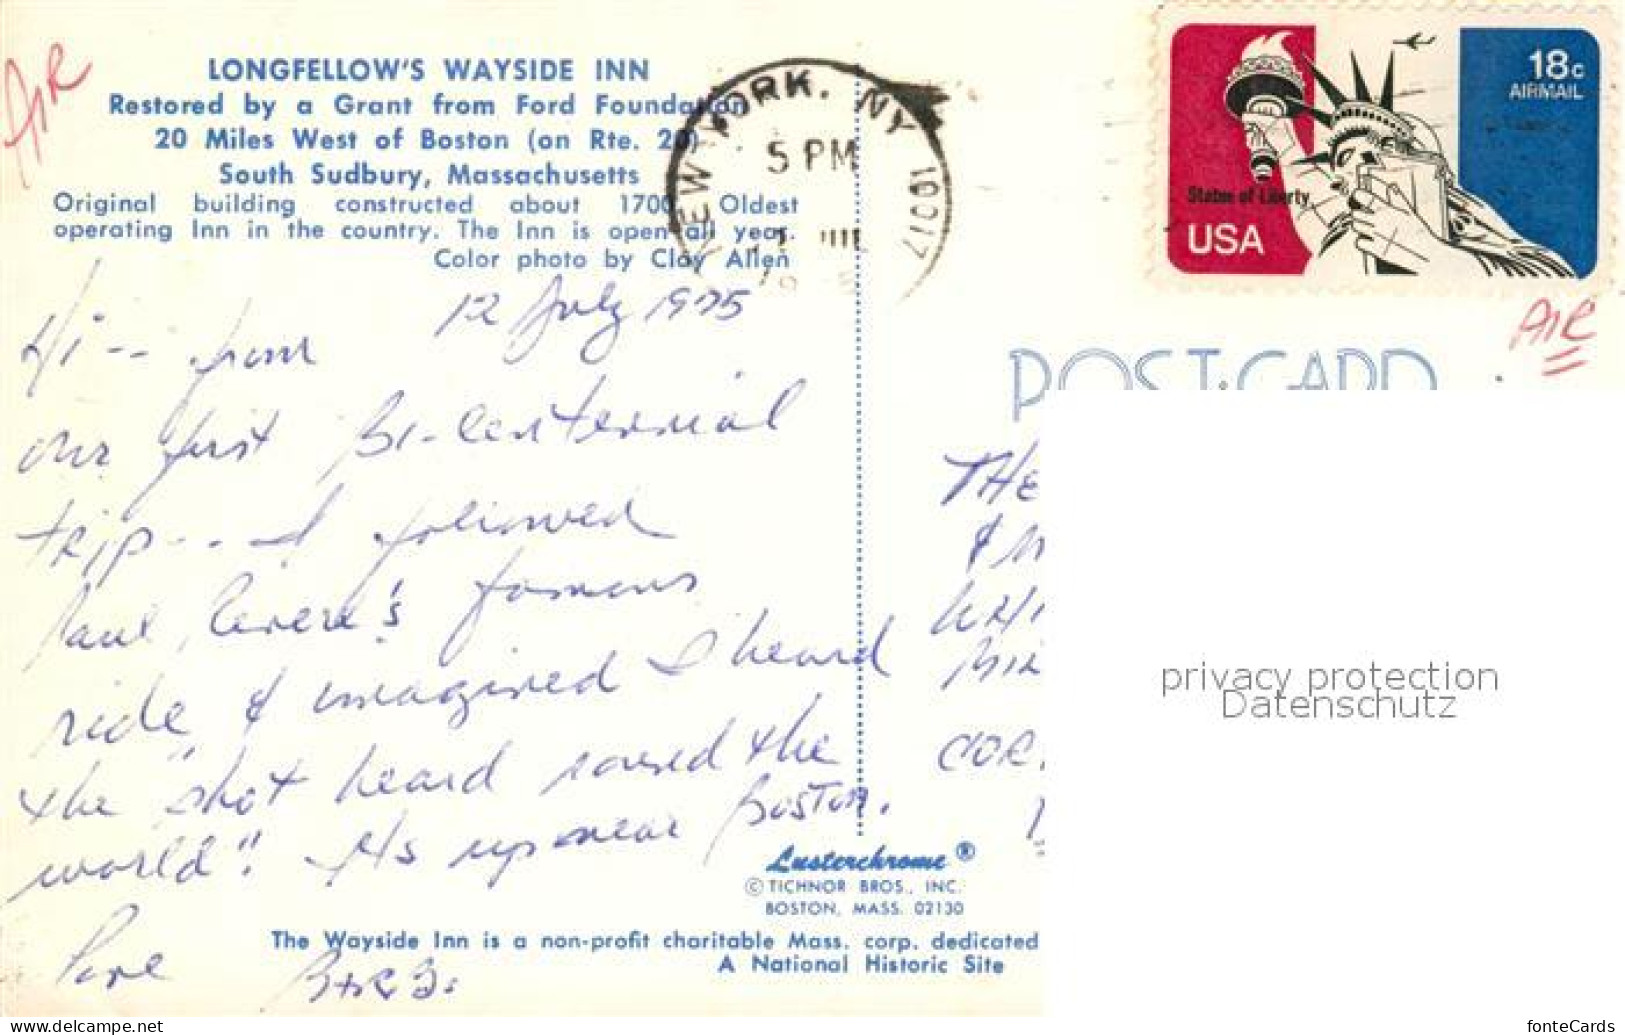 AIR
LONGFELLOW'S WAYSIDE INN
Restored by a Grant from Ford Foundation
20 Miles West of Boston (on Rte. 20)
South Sudbury, Massachusetts
Original building constructed about 1700 Oldest
operating Inn in the country. The Inn is open all year.
Color photo by Clay Allen
NEW YORK. NY 10017
5 PM
18c
AIRMAIL
Statue of Liberty
USA
AIR
POST CARD
12 July 1975
Hi -- from
our first Bi-Centennial
trip -- I followed
Paul Revere's famous
ride & imagined I heard
the "shot heard round the
world". It's up near Boston.
Love
THE
&
COR
privacy protection
Datenschutz
Lusterchrome ®
© TICHNOR BROS., INC.
BOSTON, MASS. 02130
The Wayside Inn is a non-profit charitable Mass. corp. dedicated
A National Historic Site
www.delcampe.net
fonteCards